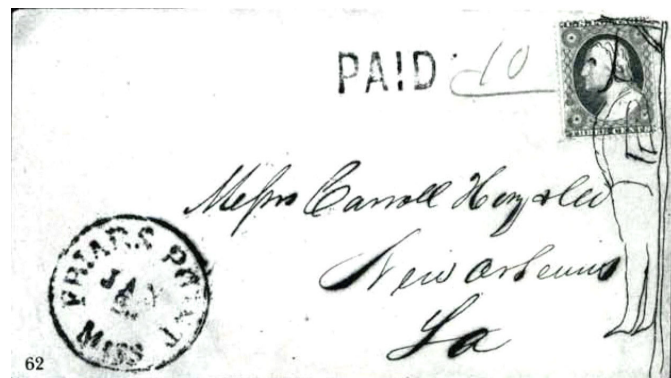 PAID 10
THREE CENTS
Messrs Carroll Hoy & Co
New Orleans
La
FRIARS POINT
JAN
MISS
62